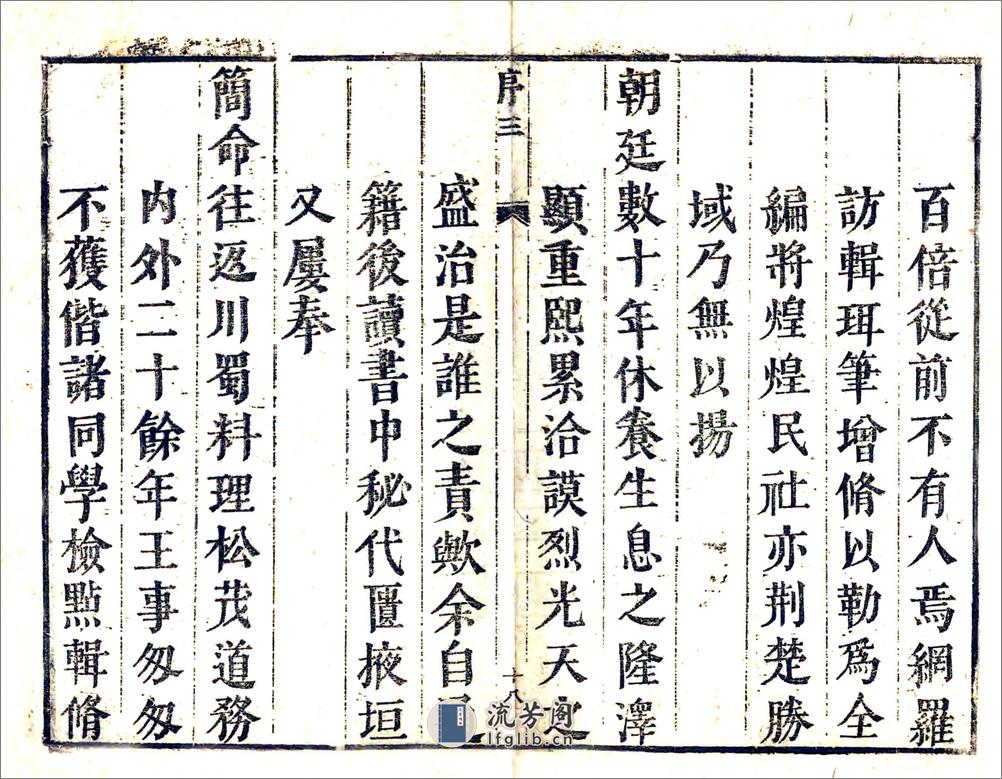 百倍從前不有人焉網羅
訪輯珥筆增脩以勒爲全
編將煌煌民社亦荆楚勝
域乃無以揚
朝廷數十年休養生息之隆澤
顯重熙累洽謨烈光天之
序三
十八
盛治是誰之責歟余自通
籍後讀書中秘代匱掖垣
又屢奉
簡命往返川蜀料理松茂道務
内外二十餘年王事匆匆
不獲偕諸同學檢點輯脩
流芳阁
lfglib.cn